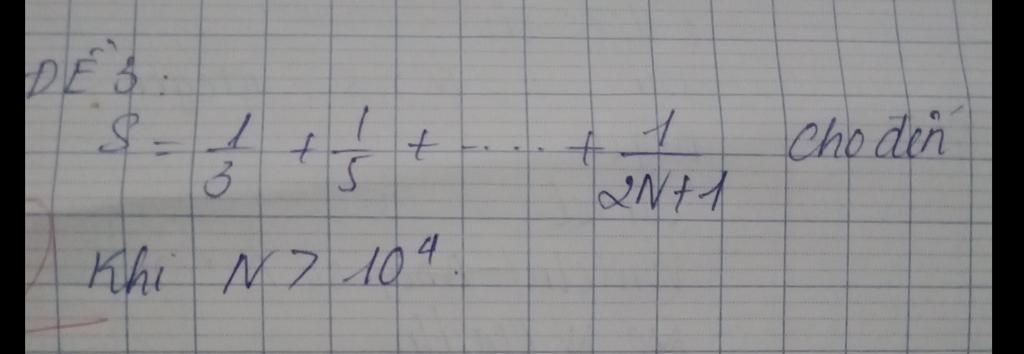 ĐỀ 3:
S = 1/3 + 1/5 + ..... + 1/2N+1 cho đến
Khi N > 10⁴.